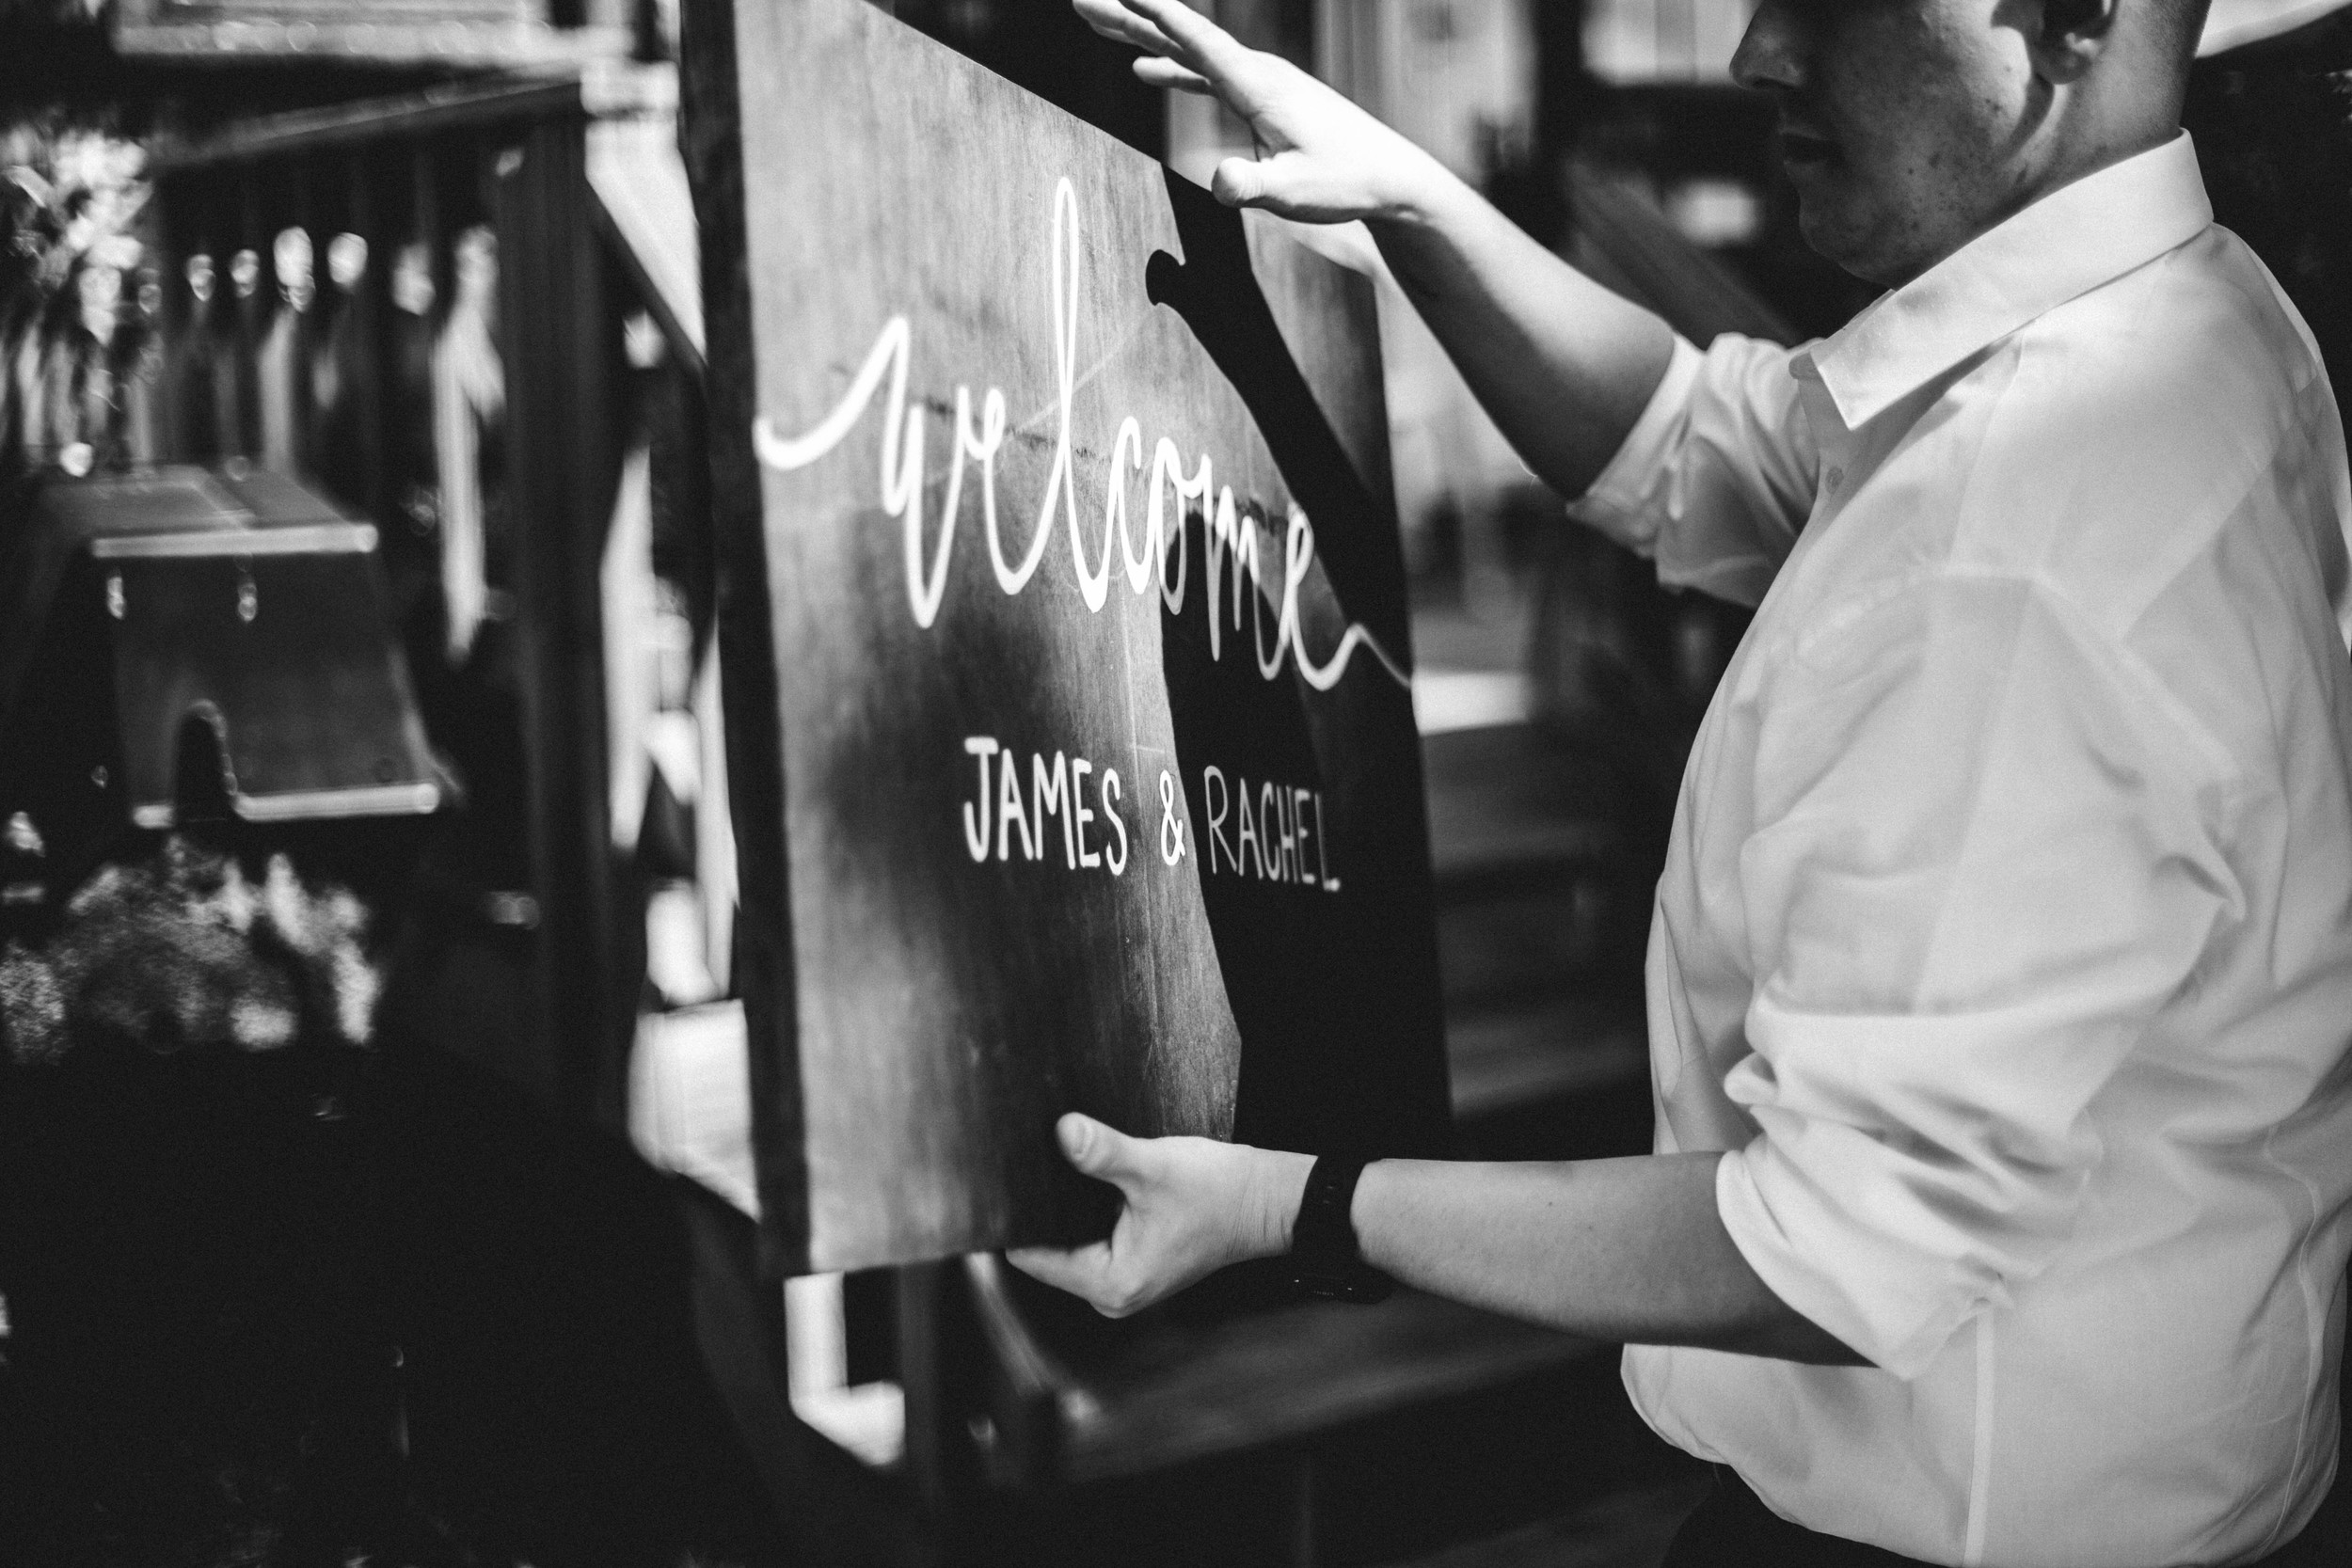 welcome
JAMES & RACHEL